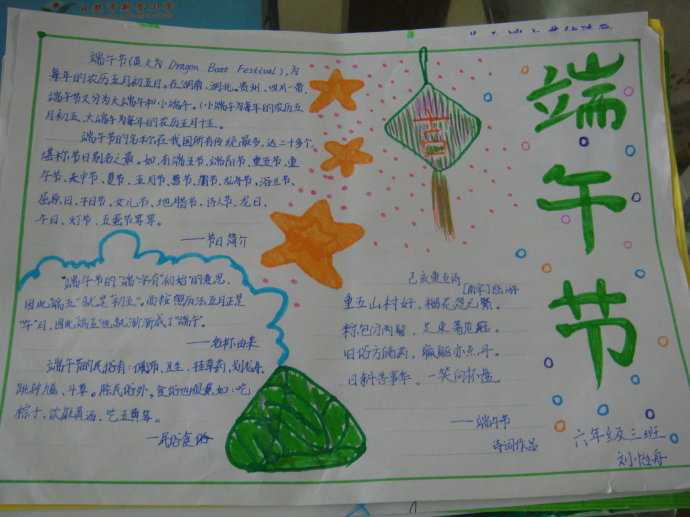 端午节(英文为 Dragon Boat Festival),为
每年的农历五月初五日。在湖南、湖北、贵州、四川一带,
端午节又分为大端午和小端午。(小端午为每年的农历五
月初五,大端午为每年的农历五月十五。
端午节的名称在我国所有传统最多,达二十多个,
堪称节日别名之最。如,有端五节、端阳节、重五节、重
午节、天中节、夏节、五月节、菖节、蒲节、龙舟节、浴兰节、
屈原日、午日节、女儿节、地腊节、诗人节、龙日、
午日、灯节、五蛋节等等。
——节日简介
"端午节的"端"字有"初始"的意思,
因此"端五"就是"初五"。而按照历法五月正是
"午"月,因此"端五"也就渐渐成了"端午"。
——名称由来
端午节的民俗有:佩饰、卫生、挂草药、划龙舟、
斗草。除民俗外,食俗也很
粽子、饮雄黄酒、吃五毒
—民俗食俗
己亥重五诗
[南宋]陆游
重五山村好,榴花忽已繁。
粽包分两髻,艾束著危冠。
旧俗方储药,羸躯亦点丹。
日斜吾事毕,一笑向杯盘。
——端午节
诗词作品
端
午
节
六年级三班